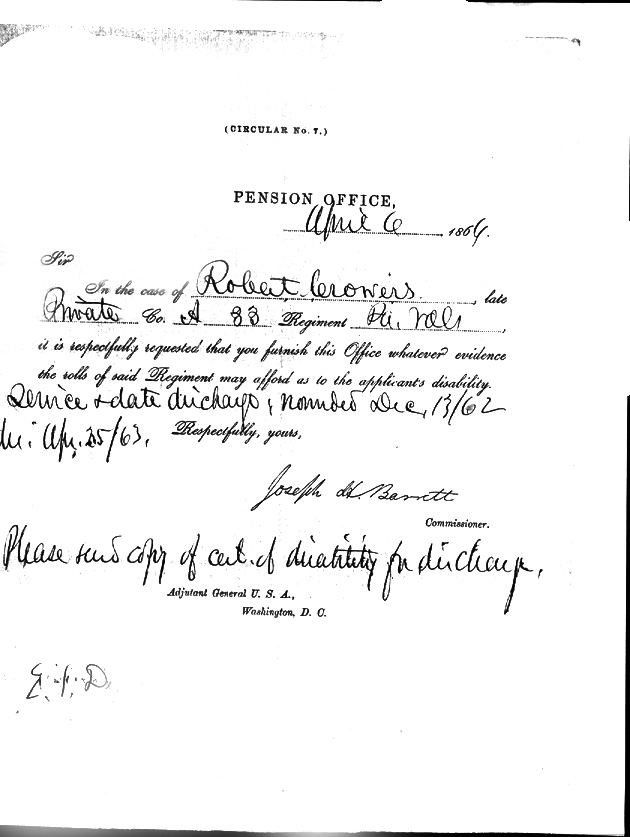 (CIRCULAR No. 7.)
PENSION OFFICE,
April 6 1864.
Sir
In the case of Robert Crowers, late
Private Co. A 83 Regiment Pa. Vols,
it is respectfully requested that you furnish this Office whatever evidence
the rolls of said Regiment may afford as to the applicant's disability.
Service & date discharge, wounded Dec, 13/62
Apr. 25/63. Respectfully, yours,
Joseph H. Barrett
Commissioner.
Please send copy of cert. of disability for discharge.
Adjutant General U. S. A.,
Washington, D. C.